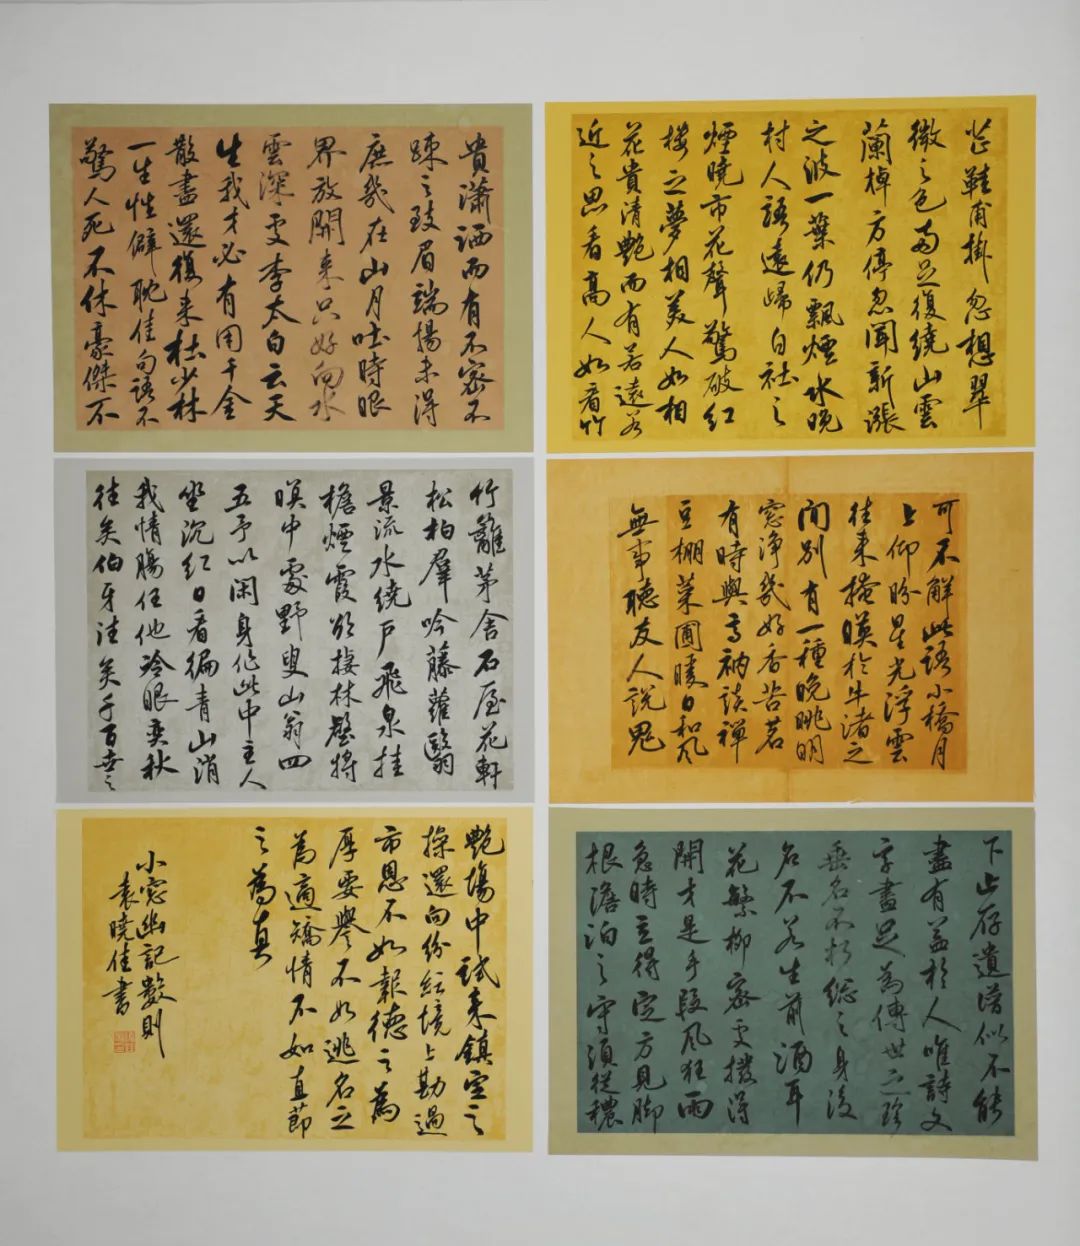 芒鞋甫掛忽想翠
微之色兩足復繞山雲
蘭棹方停忽聞新漲
之波一葉仍飄煙水晚
村人語遠歸白社之
煙曉市花聲驚破紅
樓之夢相美人如相
花貴清艷而有若遠若
近之思看高人如看竹
貴瀟洒而有不密不
踈之致眉端揚未得
庶幾在山月吐時眼
界放開来只好向水
雲深處李太白云天
生我才必有用千金
散盡還復来杜少林
一生性僻耽佳句語不
驚人死不休豪傑不
可不解此語小橋月
上仰盼星光浮雲
往来掩映於牛渚之
間別有一種晚眺明
窓淨幾好香苦茗
有時與高衲談禪
豆棚菜圃暖日和風
無事聽友人說鬼
竹籬茅舍石屋花軒
松柏羣吟藤蘿翳
景流水繞戶飛泉挂
檐煙霞欲棲林壑將
暝中處野叟山翁四
五予以閑身作此中主人
坐沉紅日看徧青山消
我情腸任他冷眼奕秋
往矣伯牙往矣千百世之
下止存遺譜似不能
盡有益於人唯詩文
字畫足為傳世之珍
垂名不朽総之身後
名不若生前酒耳
花繁柳密處撥得
開才是手段風狂雨
急時立得定方見脚
根澹泊之守須從穠
艷場中試来鎮定之
操還向紛紜境上勘過
市恩不如報德之為
厚要譽不如逃名之
為適矯情不如直節
之為真
小窓幽記數則
袁曉佳書